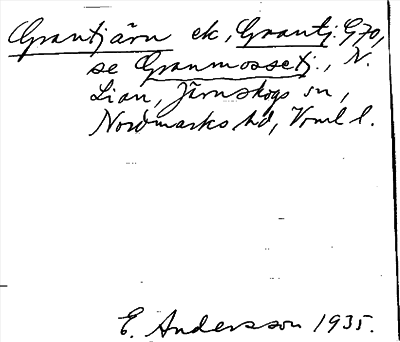 Grantjärn ek, Grantj. G70,
se Granmossetj., N.
Lian, Järnskogs sn,
Nordmarks hd, Vrml l.
E. Andersson 1935.